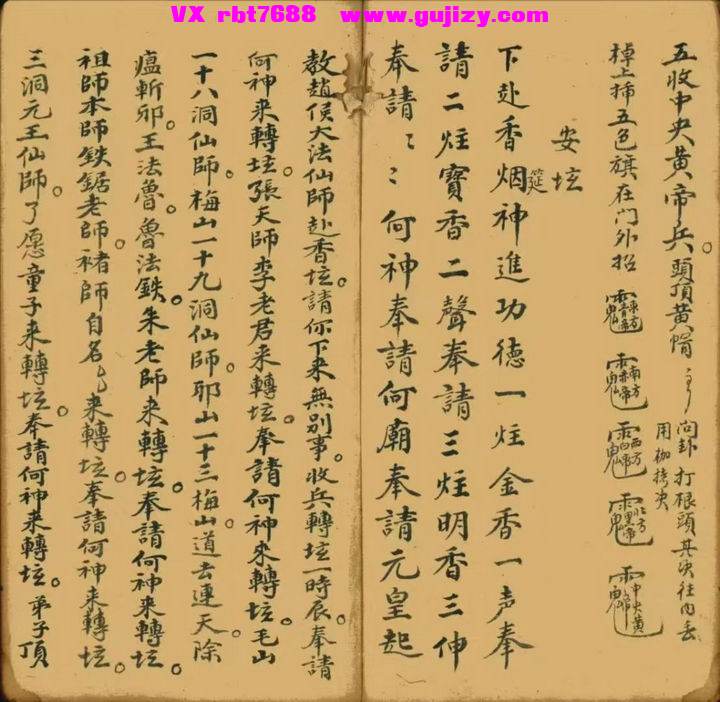 VX rbt7688 www.gujizy.com
五收中央黄帝兵。頭頂黄帽
问卦打根頭其夬往内丢
用枷拷夬
棹上插五色旗在门外招
東方青帝
南方赤帝
西方白帝
北方黑帝
中央黄帝
安坛
下赴香烟神進功德一炷金香一声奉
筵
請二炷寳香二聲奉請三炷明香三伸
奉請〻〻何神奉請何廟奉請元皇起
教趙侯大法仙師赴香坛。請你下来無别事。收兵轉坛一時辰。奉請
何神来轉坛。張天師李老君来轉坛。奉請何神来轉坛。毛山
一十八洞仙師。梅山一十九洞仙師。耶山一十三梅山道去連天除
瘟斬邪。王法魯。魯法鉄。朱老師来轉坛。奉請何神来轉坛。
祖師本師鉄鋸老師。褚師自名乜来轉坛。奉請何神来轉坛。
三洞元王仙師。了愿童子来轉坛。奉請何神来轉坛。弟子頂